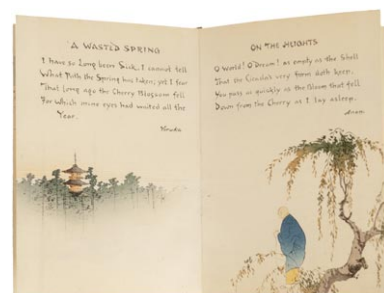 A WASTED SPRING
I have so Long been Sick, I cannot tell
What Path the Spring has taken; yet I fear
That Long ago the Cherry Blossoms fell
For which mine eyes had waited all the
Year.
ON THE HEIGHTS
O World! O Dream! as empty as the Shell
That the Cicada's very form doth keep,
You pass as quickly as the Bloom that fell
Down from the Cherry as I lay asleep.
Anon